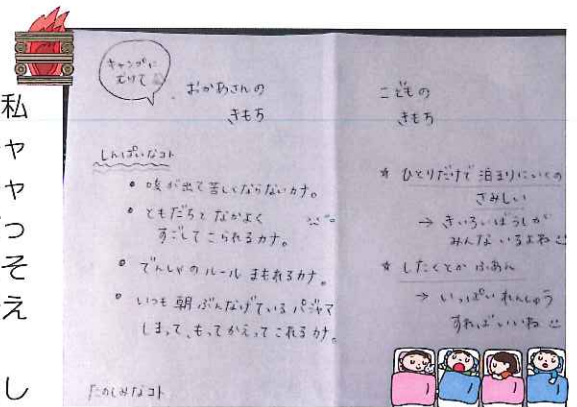 キャンプに
むけて
おかあさんの
きもち
しんぱいなコト
• 咳が出て苦しくならないカナ。
• ともだちと なかよく
すごしてこられるカナ。
• でんしゃのルール まもれるカナ。
• いつも朝ぶんなげているパジャマ
しまって、もってかえってこれるカナ。
たのしみなコト
こどもの
きもち
☆ ひとりだけで 泊まりにいくの
さみしい
→ きいろいぼうしが
みんないるよね
☆ したくとか ふあん
→ いっぱいれんしゅう
すればいいね
私
ャ
ャ
つ
そ
え
し